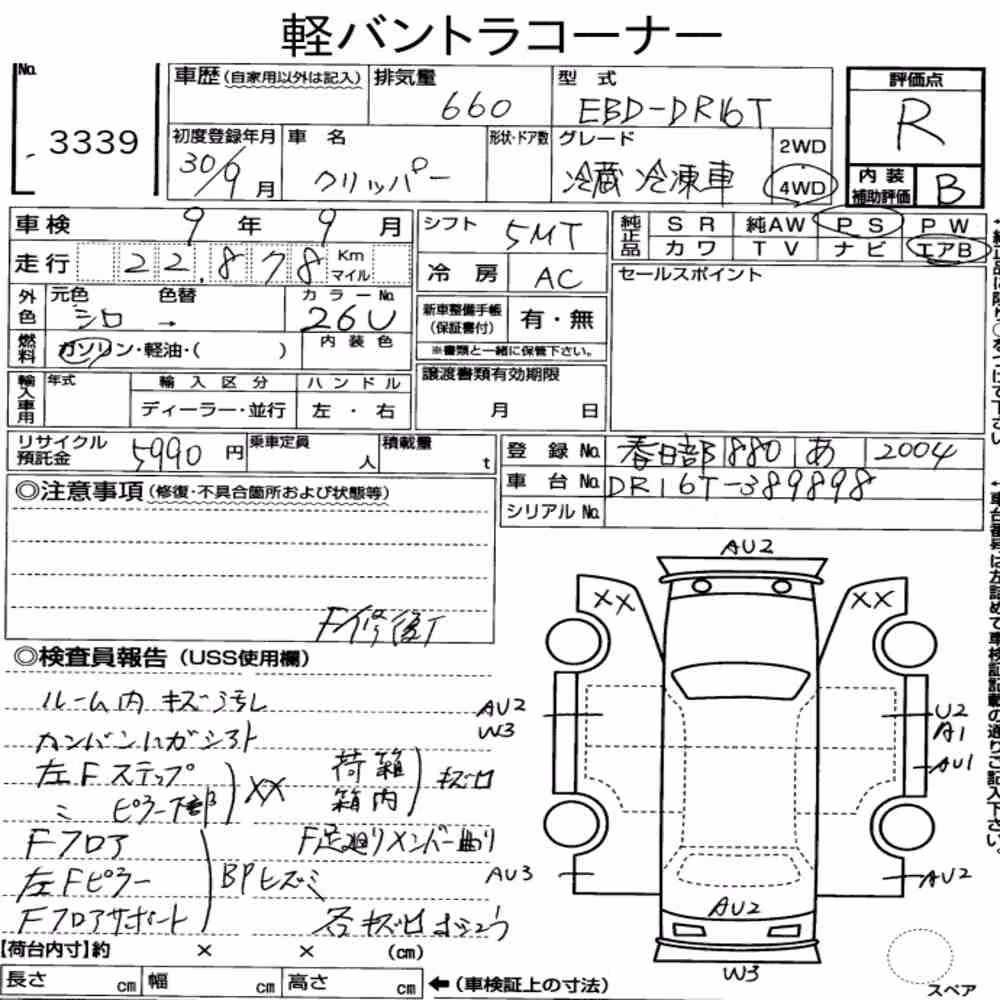 軽バントラコーナー
No.
3339
車歴(自家用以外は記入)
排気量
660
型式
EBD-DR16T
評価点
R
内装補助評価
B
初度登録年月
30/9月
車名
クリッパー
形状・ドア数
グレード
冷蔵冷凍車
2WD
4WD
車検 9年 9月
走行 22,878 Km マイル
シフト
5MT
冷房
AC
純正品
SR 純AW PS PW
カワ TV ナビ エアB
セールスポイント
外色
元色 色替
シロ →
カラーNo.
26U
燃料
ガソリン・軽油・( )
内装色
新車整備手帳(保証書付)
有・無
※書類と一緒に保管下さい。
輸入車用
年式
輸入区分
ディーラー・並行
ハンドル
左・右
譲渡書類有効期限
月 日
リサイクル預託金 5990円
乗車定員 人
積載量 t
登録No. 春日部 880 あ 2004
車台No. DR16T-389898
シリアルNo.
◎注意事項(修復・不具合箇所および状態等)
F修復
◎検査員報告(USS使用欄)
ルーム内 キズ汚レ
カンバンハガシアト
左Fステップ
〃 ピラー下部
XX
荷箱
箱内
キズ凹
Fフロア
F足廻りメンバー曲り
左Fピラー
BPヒズミ
Fフロアサポート
各キズ凹
【荷台内寸】約 × × (cm)
長さ cm 幅 cm 高さ cm ←(車検証上の寸法)
AU2
XX
XX
AU2
W3
U2
A1
AU1
AU3
AU2
AU2
W3
スペア
↑純正品に限り○をつけて下さい
↑車台番号は左詰めで車検証記載の通りご記入下さい。